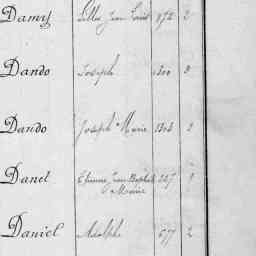 Damy Jean Louis 972 2
Dando Joseph 1300 8
Dando Joseph Marie 1303 2
Danet Etienne Jean Baptiste 227 1
Marie
Daniel Adolphe 577 2